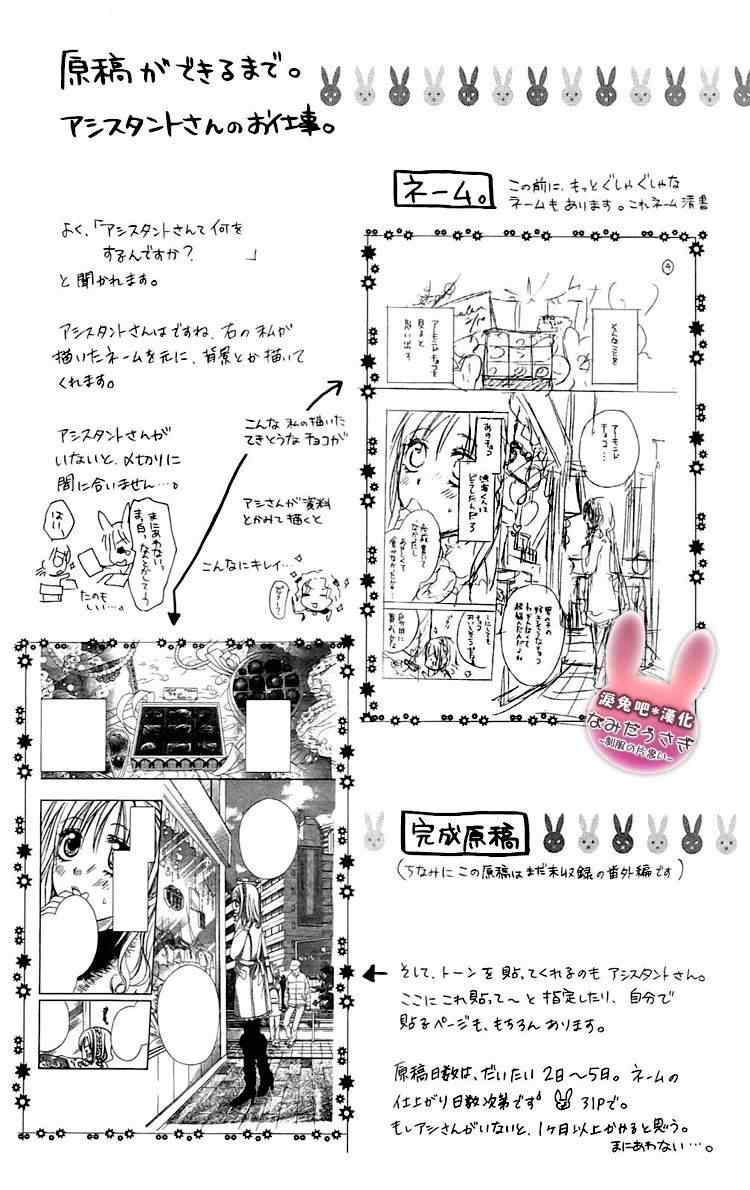 原稿ができるまで。
アシスタントさんのお仕事。
ネーム。
この前に、もっとぐしゃぐしゃな
ネームもあります。これネーム清書
よく、「アシスタントさんて何を
するんですか?」
と聞かれます。
アシスタントさんはですね、右の私が
描いたネームを元に、背景とか描いて
くれます。
アシスタントさんが
いないと、〆切りに
間に合いません…。
はいっ
まにあわない、
たのも
しい…。
こんな私の描いた
てきとうなチョコが
アシさんが資料
とかみて描くと
こんなにキレイ…
4
こんなことを
アーモンドチョコを
見ると
思い出す
アーモンド
チョコ…
あのチョコ
完成原稿
(ちなみにこの原稿はまだ未収録の番外編です)
そして、トーンを貼ってくれるのもアシスタントさん。
ここにこれ貼って〜と指定したり、自分で
貼るページも、もちろんあります。
原稿日数は、だいたい2日〜5日。ネームの
仕上がり日数次第です 31Pで。
もしアシさんがいないと、1ヶ月以上かかると思う。
まにあわない…。
涙兔吧*漢化
なみだうさぎ
~制服の片思い~